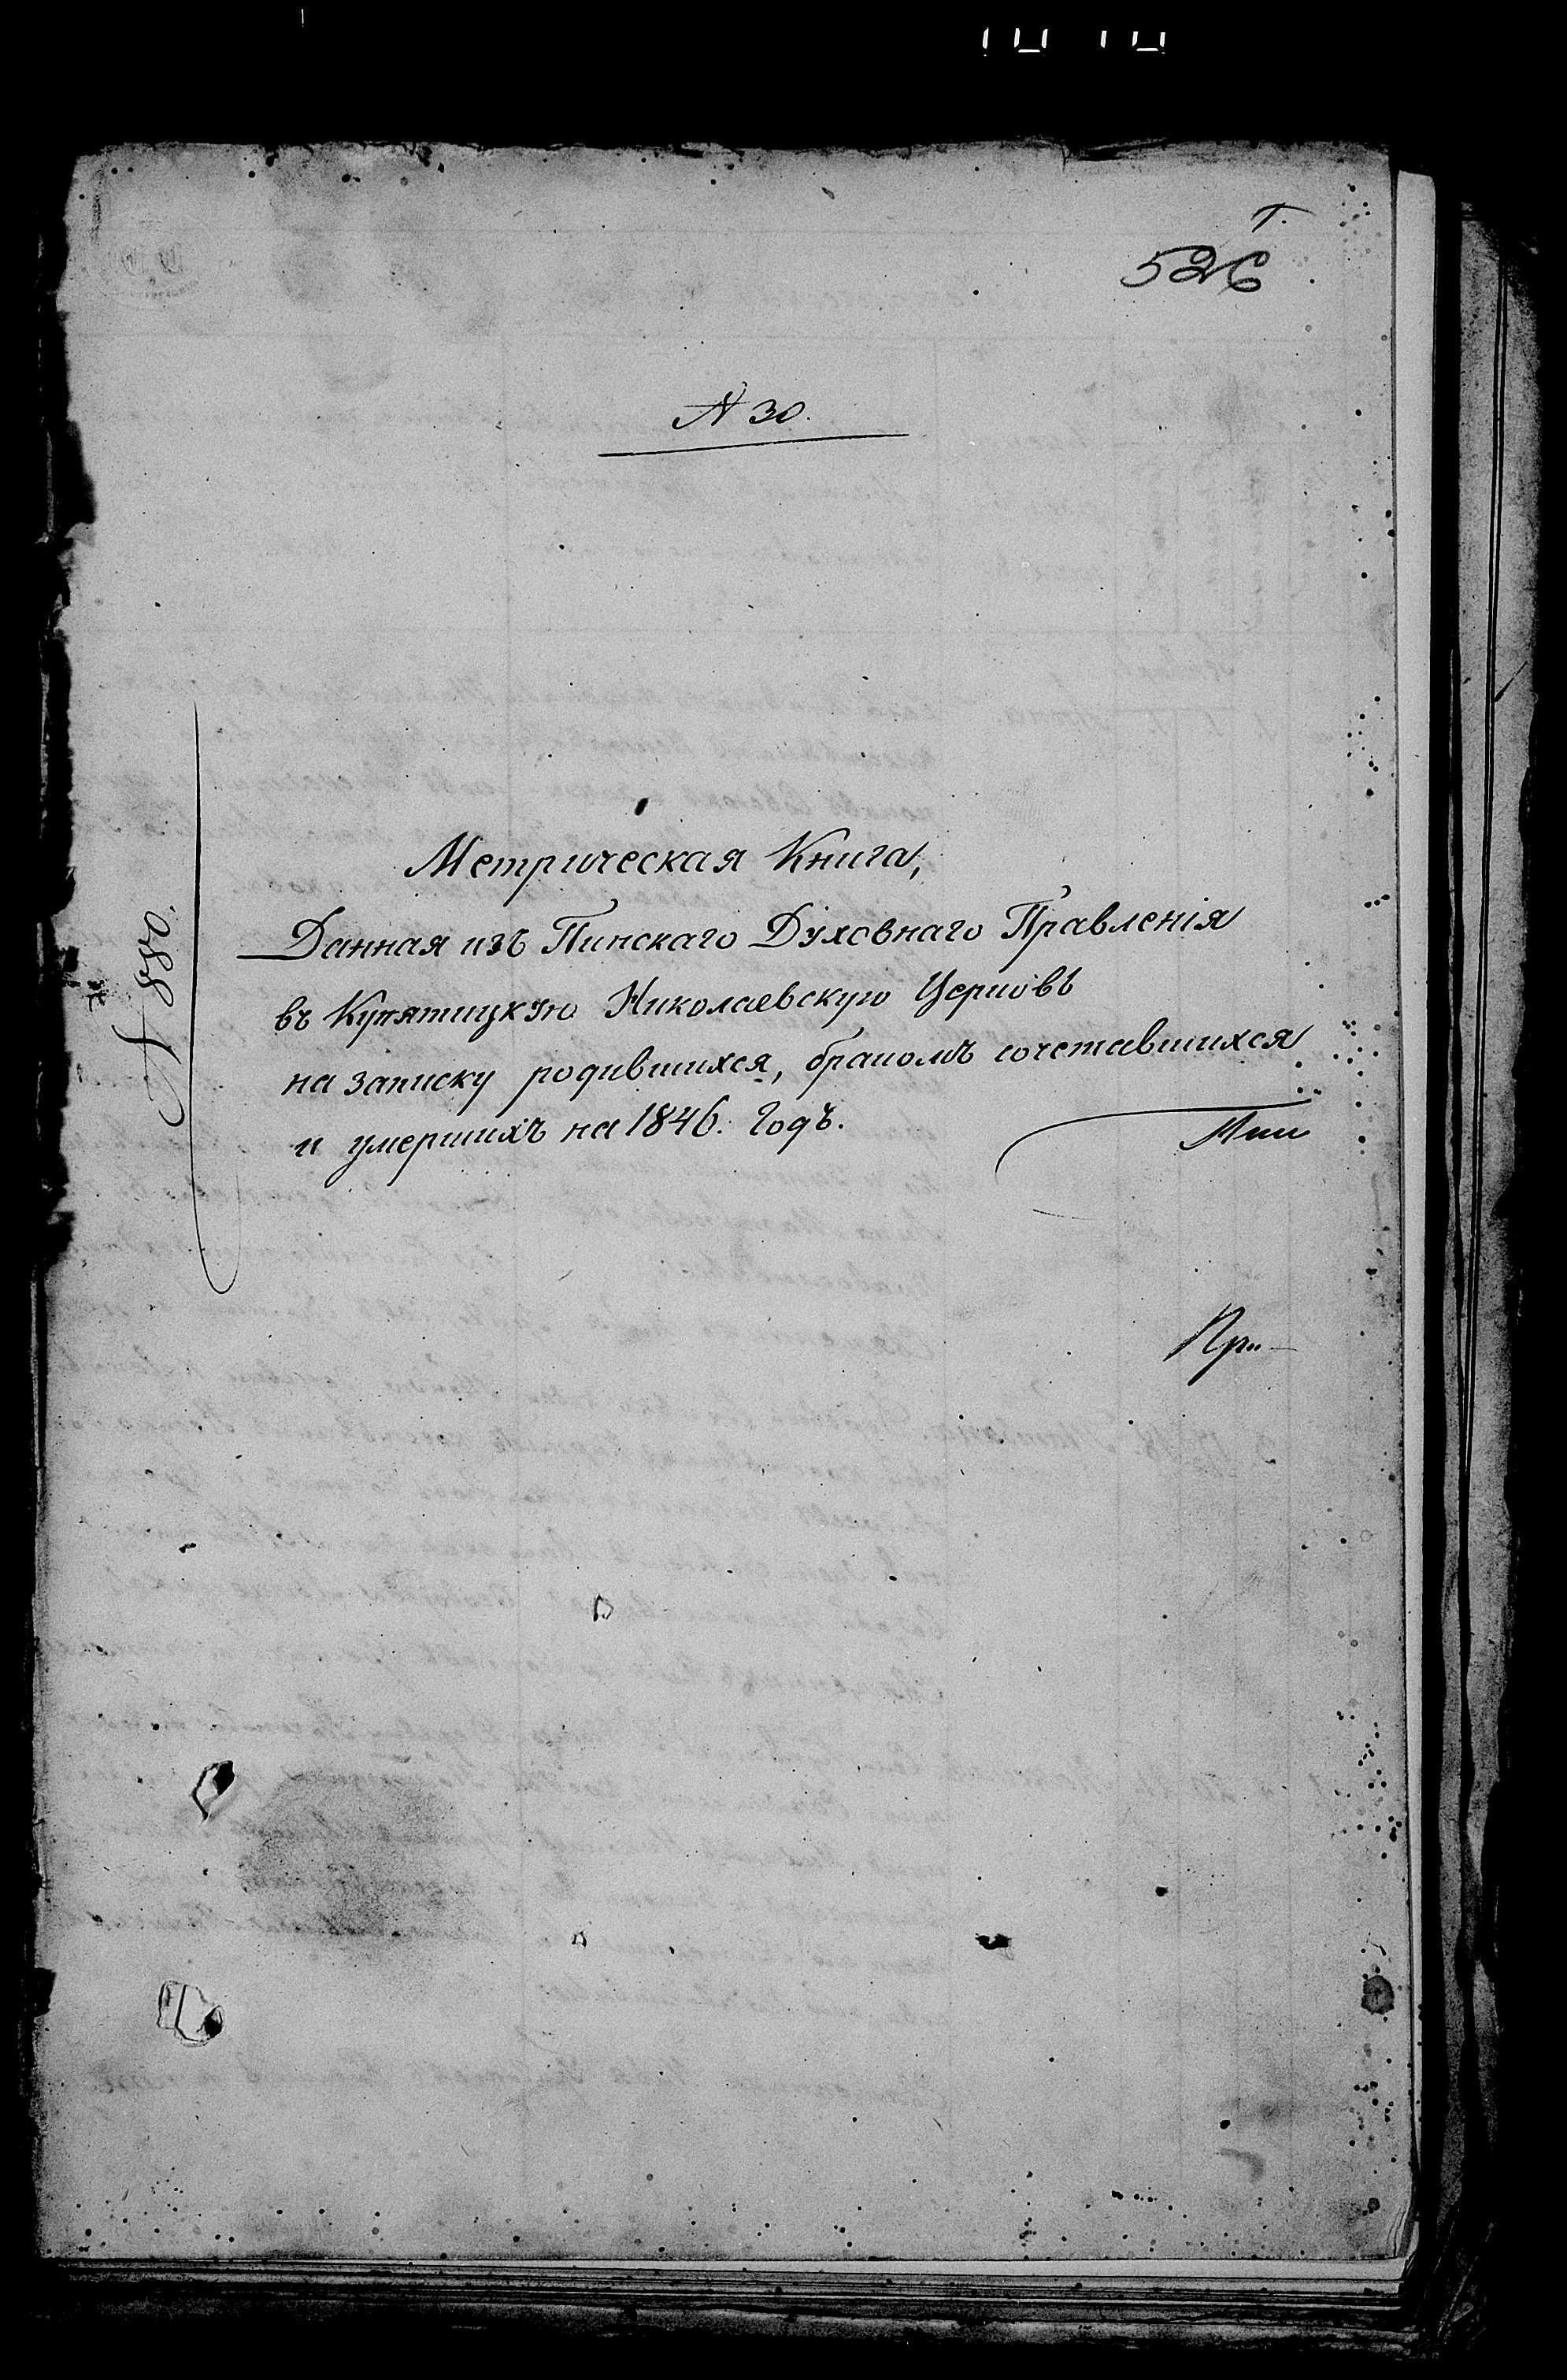 1.
526
№ 30.
Метрическая Книга,
Данная изъ Пинскаго Духовнаго Правленія
въ Купятицкую Николаевскую Церковь
на записку родившихся, бракомъ сочетавшихся
и умершихъ на 1846. Годъ.
№ 880.